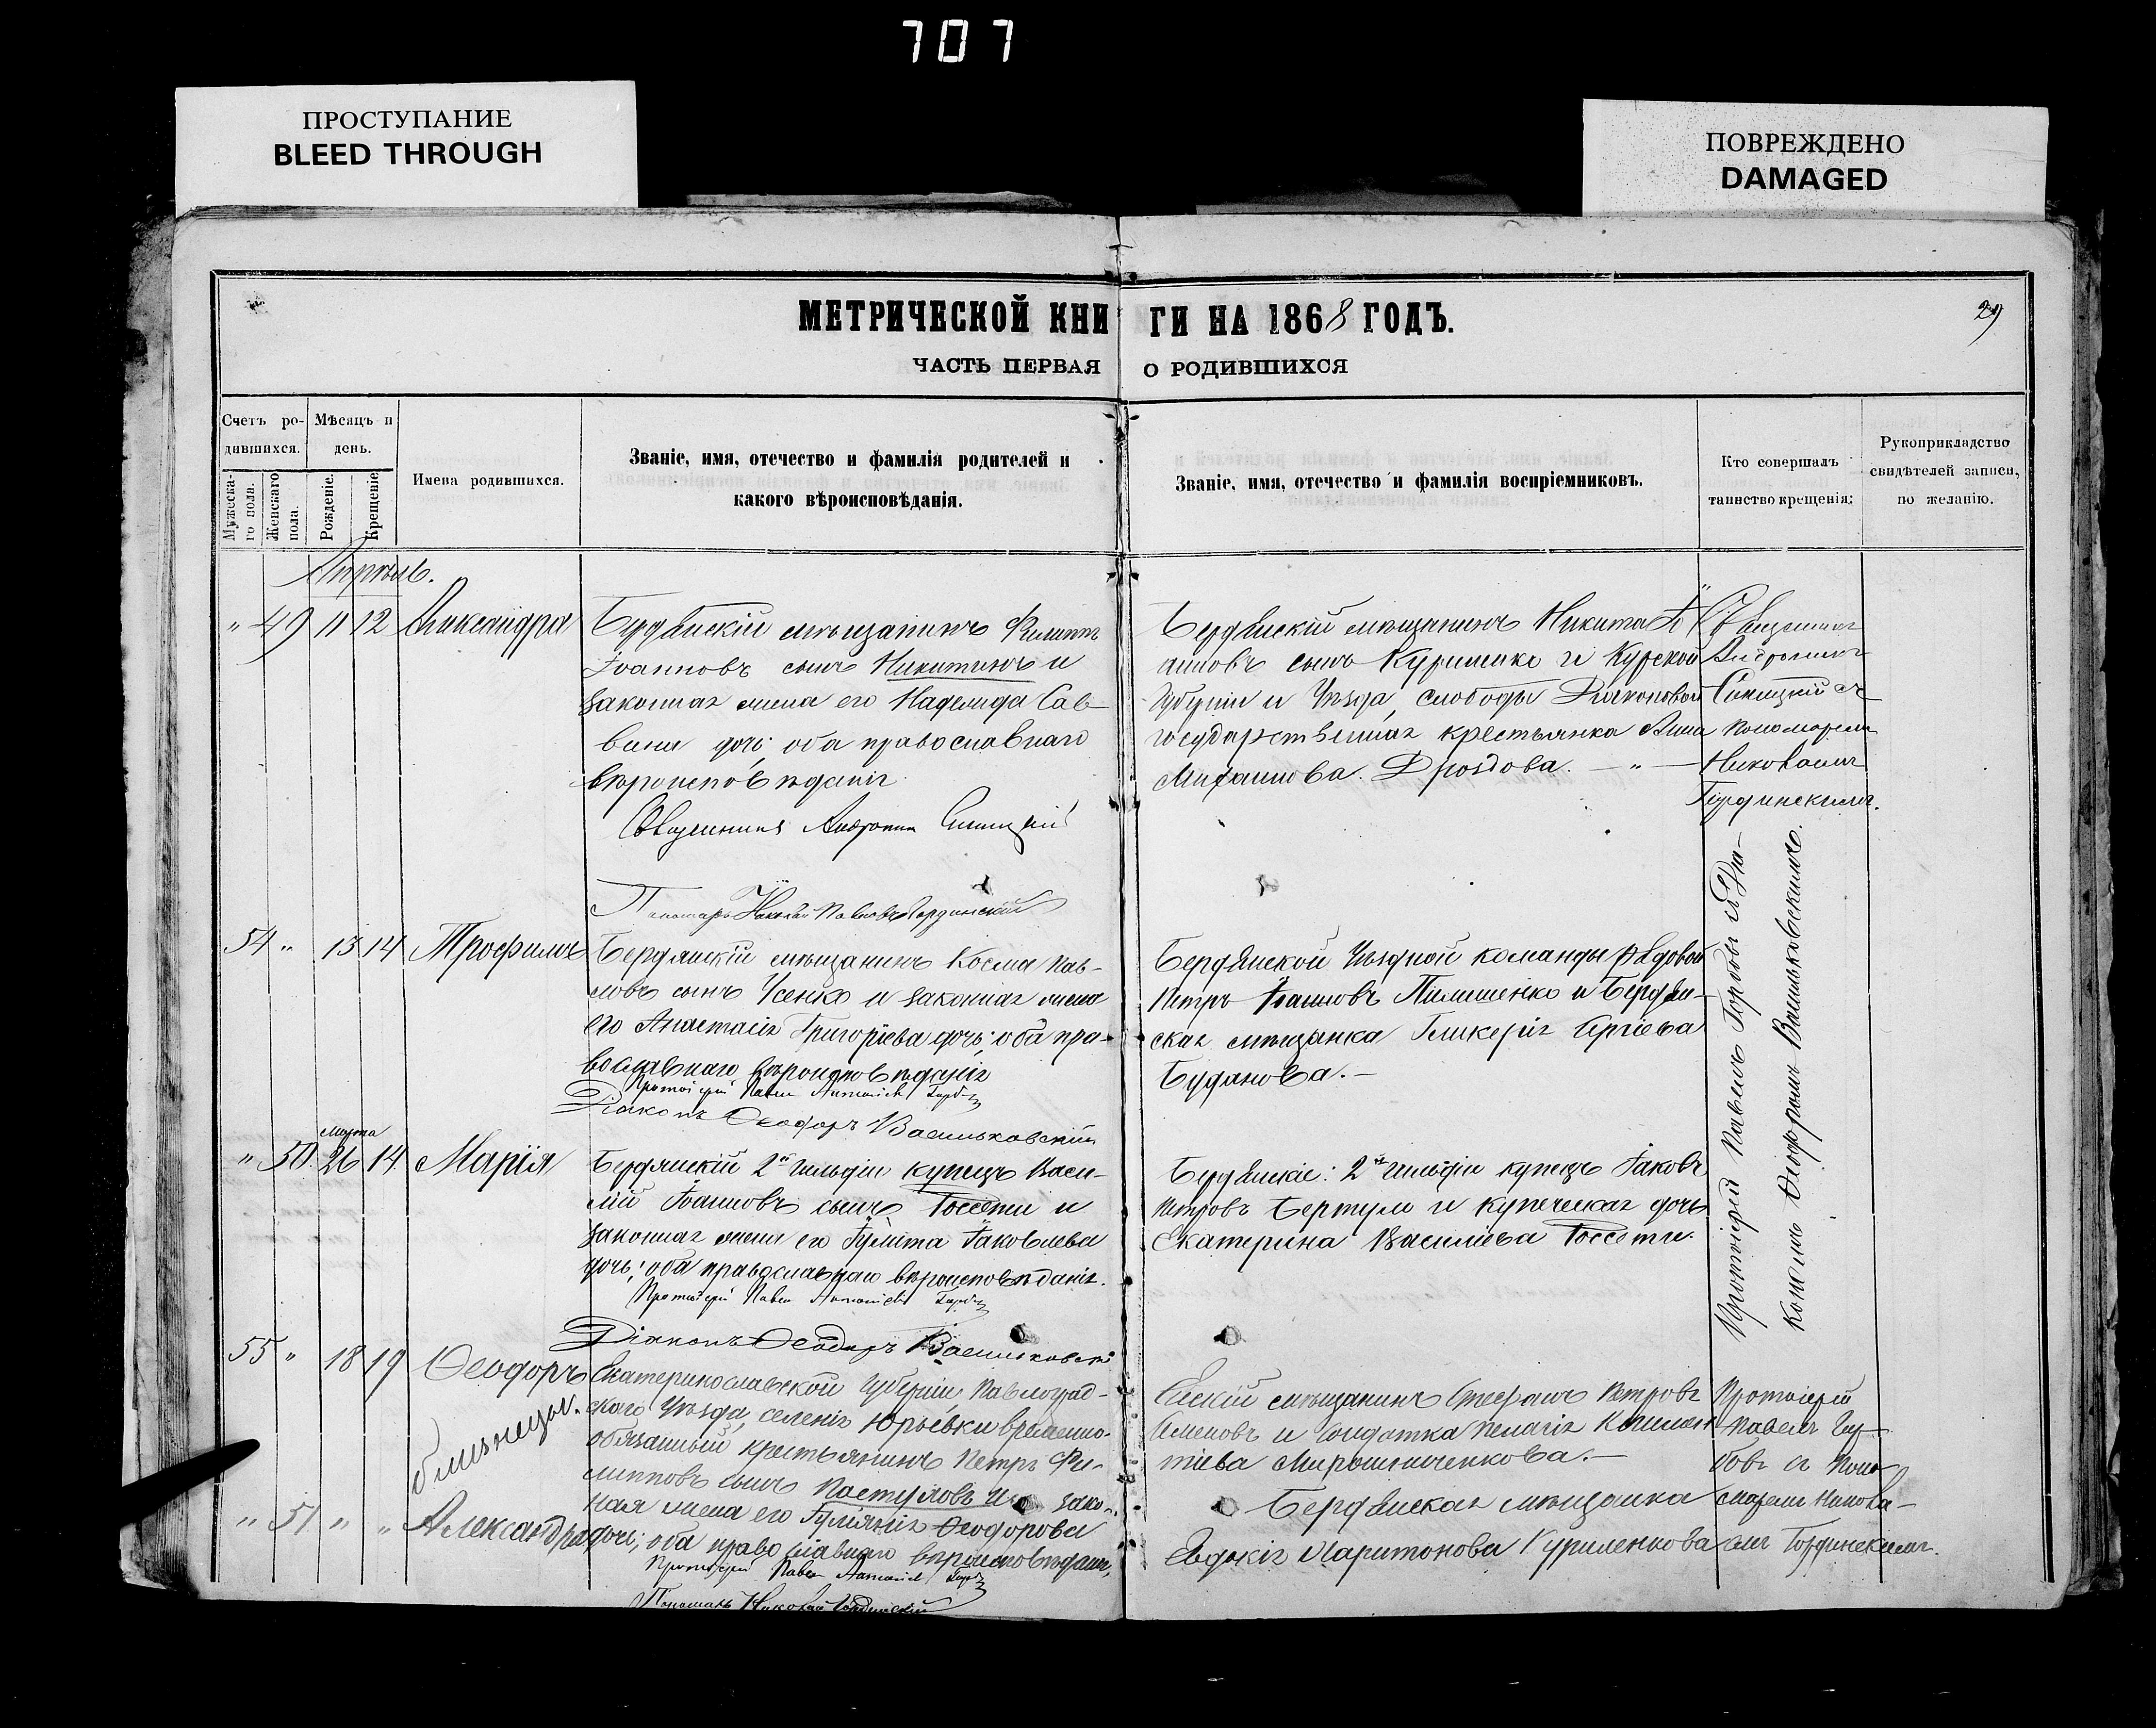 707
ПРОСТУПАНИЕ
BLEED THROUGH
ПОВРЕЖДЕНО
DAMAGED
МЕТРИЧЕСКОЙ КНИГИ НА 1868 ГОДЪ.
29
ЧАСТЬ ПЕРВАЯ О РОДИВШИХСЯ
Счетъ ро-
дившихся.
Мужеска-
го пола.
Женскаго
пола.
Мѣсяцъ и
день.
Рожденіе.
Крещеніе
Имена родившихся.
Званіе, имя, отечество и фамилія родителей и
какого вѣроисповѣданія.
Званіе, имя, отечество и фамилія воспріемниковъ.
Кто совершалъ
таинство крещенія:
Рукоприкладство
свидѣтелей записи,
по желанію.
Апрѣль.
" 49 11 12 Александра
Бердянскій мѣщанинъ Филиппъ
Іоанновъ сынъ Никитинъ и
законная жена его Надежда Сав-
вина дочь; оба православнаго
вѣроисповѣданія
Священникъ Андроникъ Синицкій
Пономарь Николай Павловъ Гординскій
Бердянскій мѣщанинъ Никита Іо
анновъ сынъ Куриленко и Курской
Губерніи и Уѣзда, слободы Дьяконовой
государственная крестьянка Анна
Михайлова Дроздова. — " —
Священникъ
Андроникъ
Синицкій съ
пономаремъ
Николаемъ
Гординскимъ.
54 " 13 14 Трофимъ
Бердянскій мѣщанинъ Косма Пав-
ловъ сынъ Усенко и законная жена
его Анастасія Григоріева дочь; оба пра-
вославнаго вѣроисповѣданія
Протоіерей Павелъ
Діаконъ Ѳеодоръ Васильковскій
Бердянской Уѣздной команды рядовой
Петръ Іоанновъ Пилипенко и Бердян-
ская мѣщанка Гликерія Сергіева
Буданова. —
Протоіерей Павелъ Горбовъ и Діа-
кономъ Ѳеодоромъ Васильковскимъ.
марта
" 50. 26 14. Марія
Бердянскій 2й гильдіи купецъ Васи-
лій Іоанновъ сынъ Россети и
законная жена его Іулита Іаковлева
дочь; оба православнаго вѣроисповѣданія.
Протоіерей Павелъ
Діаконъ Ѳеодоръ Васильковскі
Бердянскіе: 2й гильдіи купецъ Іаковъ
Петровъ Бертули и купеческая дочь
Екатерина Васильева Россети.
55 " 18 19 Ѳеодоръ
близнецы.
Екатеринославской Губерніи, Павлоград-
скаго Уѣзда, селенія Юрьевки временно-
обязанный крестьянинъ Петръ Фи-
липповъ сынъ Пастуховъ и зако-
ная жена его Іуліанія Ѳеодорова
дочь; оба православнаго вѣроисповѣданія,
Протоіерей Павелъ
Пономарь Николай Гординскій
Ейскій мѣщанинъ Стефанъ Петровъ
Семеновъ и солдатка Пелагія Климен-
тіева Мирошниченкова. —
Протоіерей
Павелъ Гор-
бовъ съ Поно-
маремъ Никола-
емъ Гординскимъ.
" 51 " " Александра
Бердянская мѣщанка
Евдокія Харитонова Куриленкова